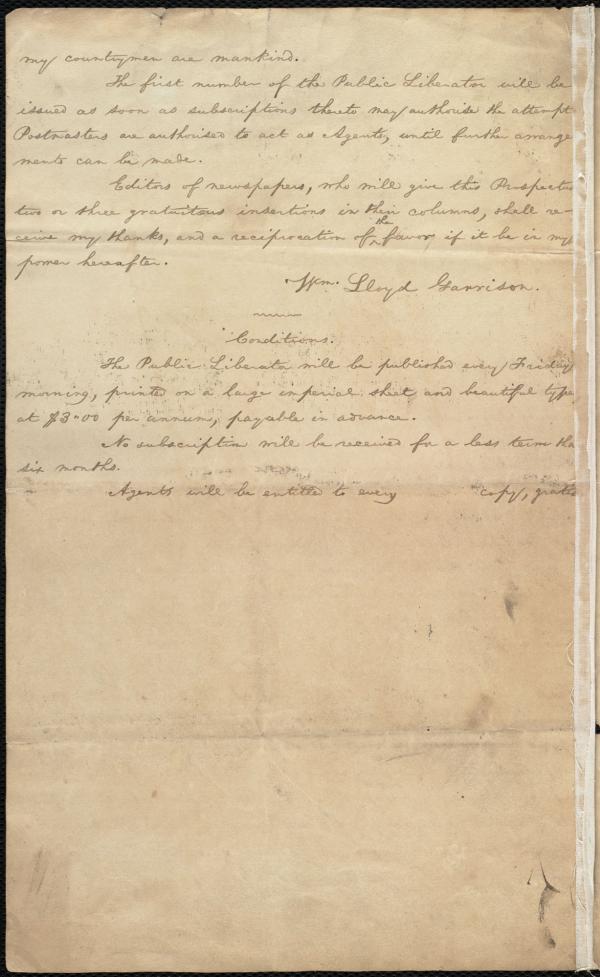 my countrymen are mankind.
The first number of the Public Liberator will be
issued as soon as subscriptions thereto may authorise the attempt
Postmasters are authorised to act as Agents, until further arrange
ments can be made.
Editors of newspapers, who will give this Prospectus
two or three gratuitous insertions in their columns, shall re-
ceive my thanks, and a reciprocation of the favor, if it be in my
power hereafter.
Wm. Lloyd Garrison.
Conditions.
The Public Liberator will be published every Friday
morning, printed on a large imperial sheet and beautiful type,
at $3.00 per annum, payable in advance.
No subscription will be received for a less term tha
six months.
Agents will be entitled to every copy, gratis